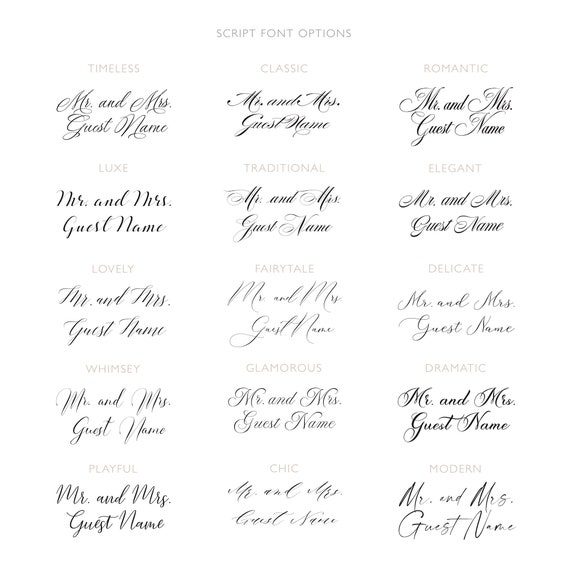 SCRIPT FONT OPTIONS
TIMELESS
Mr. and Mrs.
Guest Name
CLASSIC
Mr. and Mrs.
Guest Name
ROMANTIC
Mr. and Mrs.
Guest Name
LUXE
Mr. and Mrs.
Guest Name
TRADITIONAL
Mr. and Mrs.
Guest Name
ELEGANT
Mr. and Mrs.
Guest Name
LOVELY
Mr. and Mrs.
Guest Name
FAIRYTALE
Mr. and Mrs.
Guest Name
DELICATE
Mr. and Mrs.
Guest Name
WHIMSEY
Mr. and Mrs.
Guest Name
GLAMOROUS
Mr. and Mrs.
Guest Name
DRAMATIC
Mr. and Mrs.
Guest Name
PLAYFUL
Mr. and Mrs.
Guest Name
CHIC
Mr. and Mrs.
Guest Name
MODERN
Mr. and Mrs.
Guest Name